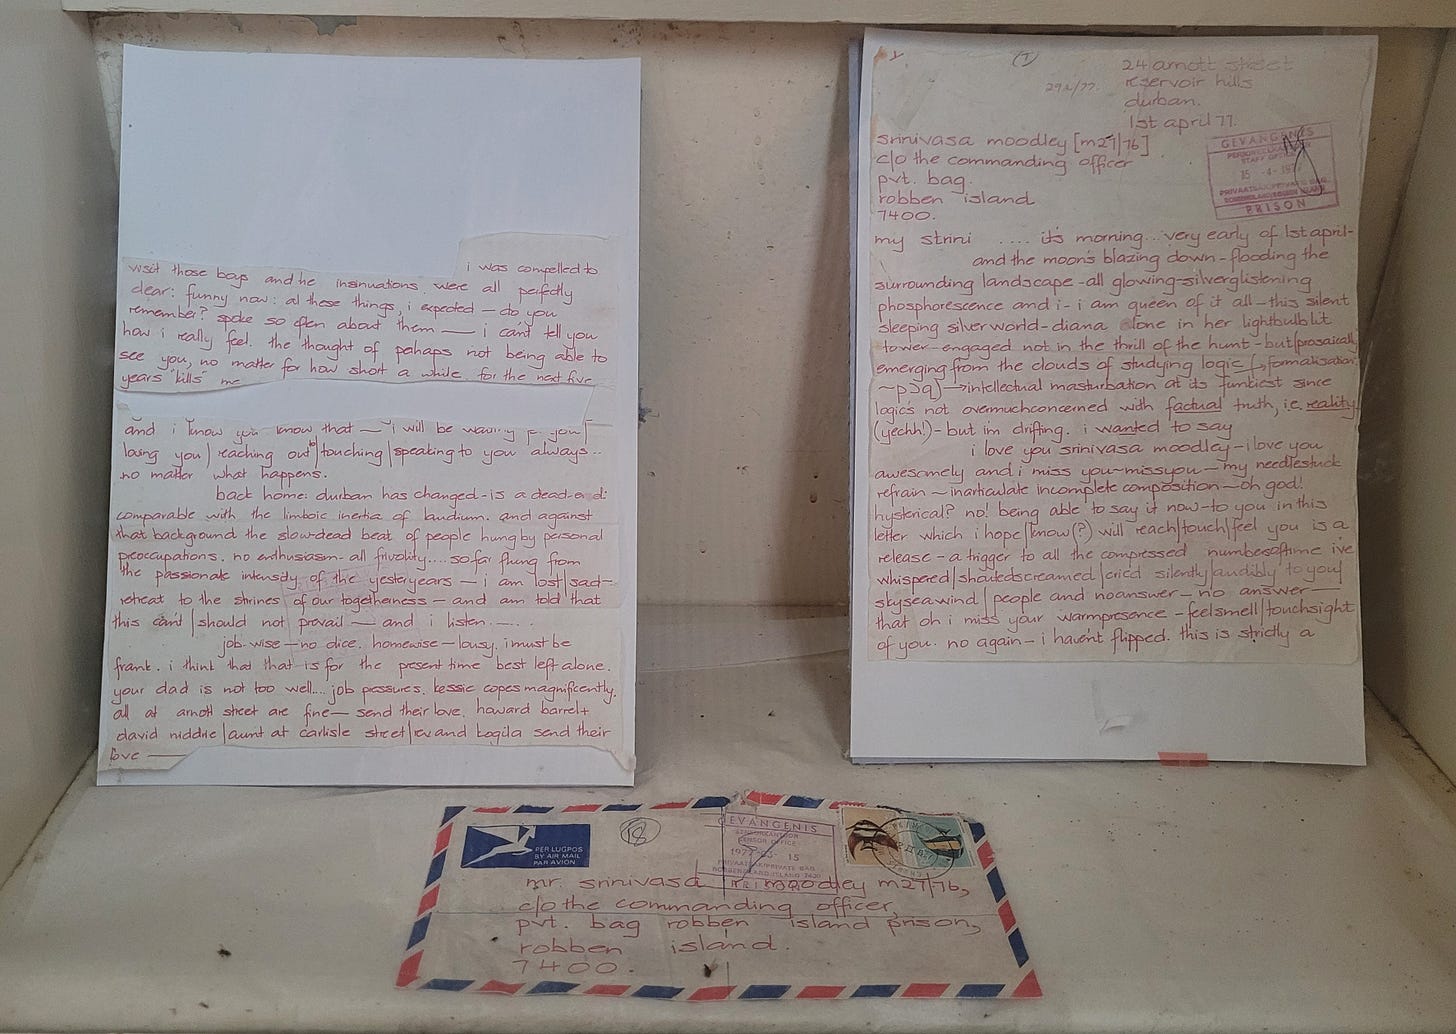 visit those boys and he insinuations were all perfectly
i was compelled to
clear: funny now: al these things, i expected — do you
remember? spoke so often about them — i can't tell you
how i really feel. the thought of pehaps not being able to
see you, no matter for how short a while for the next five
years "kills" me
and i know you know that — i will be
losing you/reaching out to/touching/speaking to you always..
no matter what happens.
back home: durban has changed - is a dead-end:
comparable with the limboic inertia of laudium. and against
that background the slow-dead beat of people hung by personal
preoccupations. no enthusiasm - all frivolity.... so far flung from
the passionate intensity of the yesteryears — i am lost/sad -
retreat to the shrines of our togetherness — and am told that
this can't/should not prevail — and i listen......
job-wise — no dice. homewise — lousy. i must be
frank. i think that that is for the present time best left alone.
your dad is not too well.... job pressures. kessie copes magnificently.
all at arnott street are fine — send their love. howard barrel +
david niddrie/aunt at carlisle street/rev and kogila send their
love —
24 arnott street
reservoir hills
durban.
1st april 77.
srinivasa moodley [m27/76]
c/o the commanding officer
pvt. bag.
robben island
7400.
GEVANGENIS
STAFF OFFICE
15 -4- 197
PRIVAATSAK/PRIVATE BAG
ROBBENEILAND/ROBBEN ISLAND
PRISON
my strini .... it's morning... very early of 1st april -
and the moon's blazing down - flooding the
surrounding landscape - all glowing-silverglistening
phosphorescence and i - i am queen of it all - this silent
sleeping silver world - diana alone in her lightbulblit
tower - engaged not in the thrill of the hunt - but/prosaically
emerging from the clouds of studying logic (, formalisation:
~p⊃q) → intellectual masturbation at its funkiest since
logics not overmuchconcerned with factual truth, i.e. reality
(yechh!) - but i'm drifting. i wanted to say
i love you srinivasa moodley - i love you
awesomely and i miss you~missyou — my needlestuck
refrain ~ inarticulate incomplete composition ~ oh god!
hysterical? no! being able to say it now - to you in this
letter which i hope/know(?) will reach/touch/feel you is a
release - a trigger to all the compressed numbersoftime i've
whispered/shoutedscreamed/cried silently/audibly to you/
skyseawind/people and noanswer - no answer —
that oh i miss your warmpresence - feelsmell/touchsight
of you. no again - i haven't flipped. this is strictly a
PER LUGPOS
BY AIR MAIL
PAR AVION
18
GEVANGENIS
SENSORKANTOOR
CENSOR OFFICE
15
PRIVAATSAK/PRIVATE BAG
ROBBENEILAND/ISLAND 7400
PRISON
mr. srinivasa moodley m27/76,
c/o the commanding officer,
pvt. bag robben island prison,
robben island.
7400.